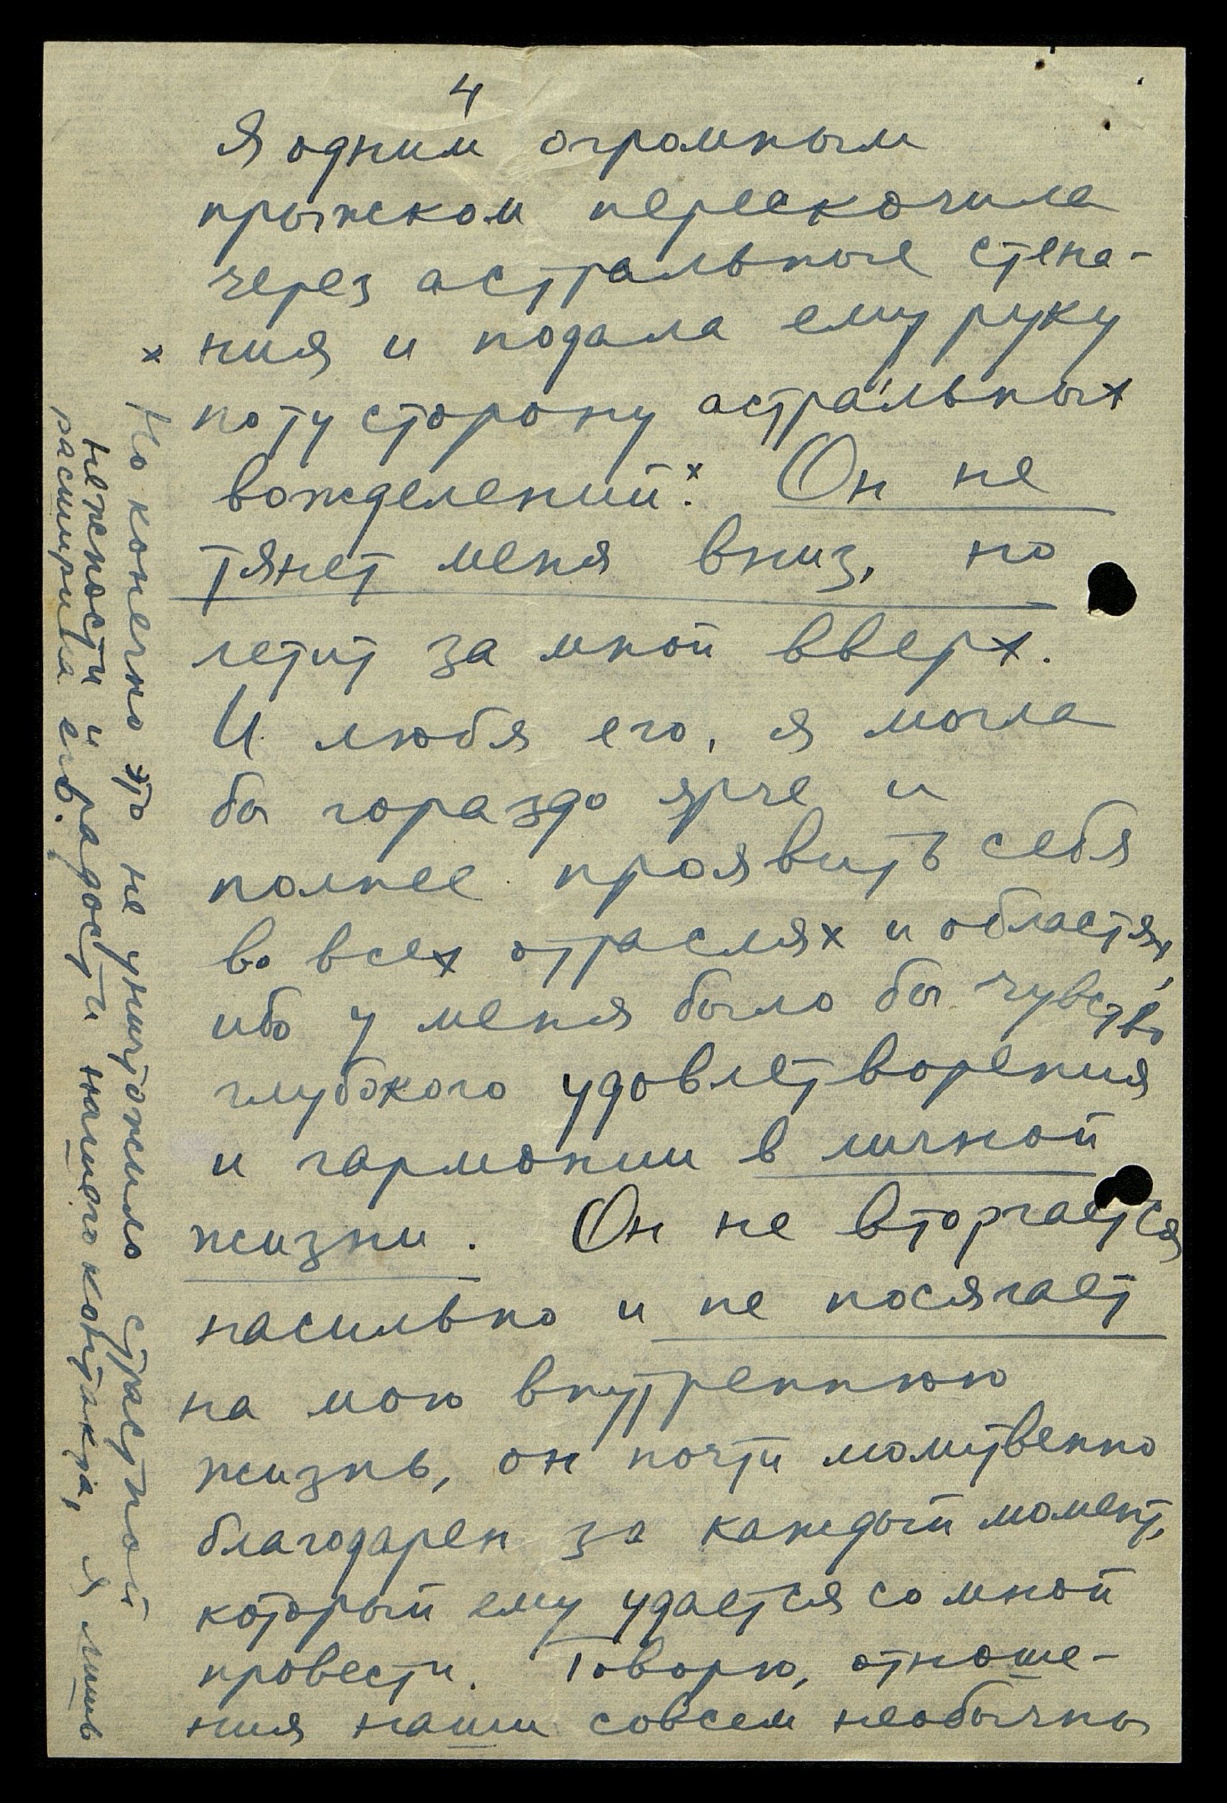 4
Я одним огромным
прыжком перескочила
через астральные стена-
ния и подала ему руку
по ту сторону астральных
вожделений.x Он не
тянет меня вниз, но
летит за мной вверх.
И любя его, я могла
бы гораздо ярче и
полнее проявить себя
во всех отраслях и областях,
ибо у меня было бы чувство
глубокого удовлетворения
и гармонии в личной
жизни. Он не вторгается
насильно и не посягает
на мою внутреннюю
жизнь, он почти молитвенно
благодарен за каждый момент,
который ему удается со мной
провести. Говорю, отноше-
ния наши совсем необычны
x Но конечно это не уничтожило страстной
нежности и радости нашего контакта, я лишь
расширила его.